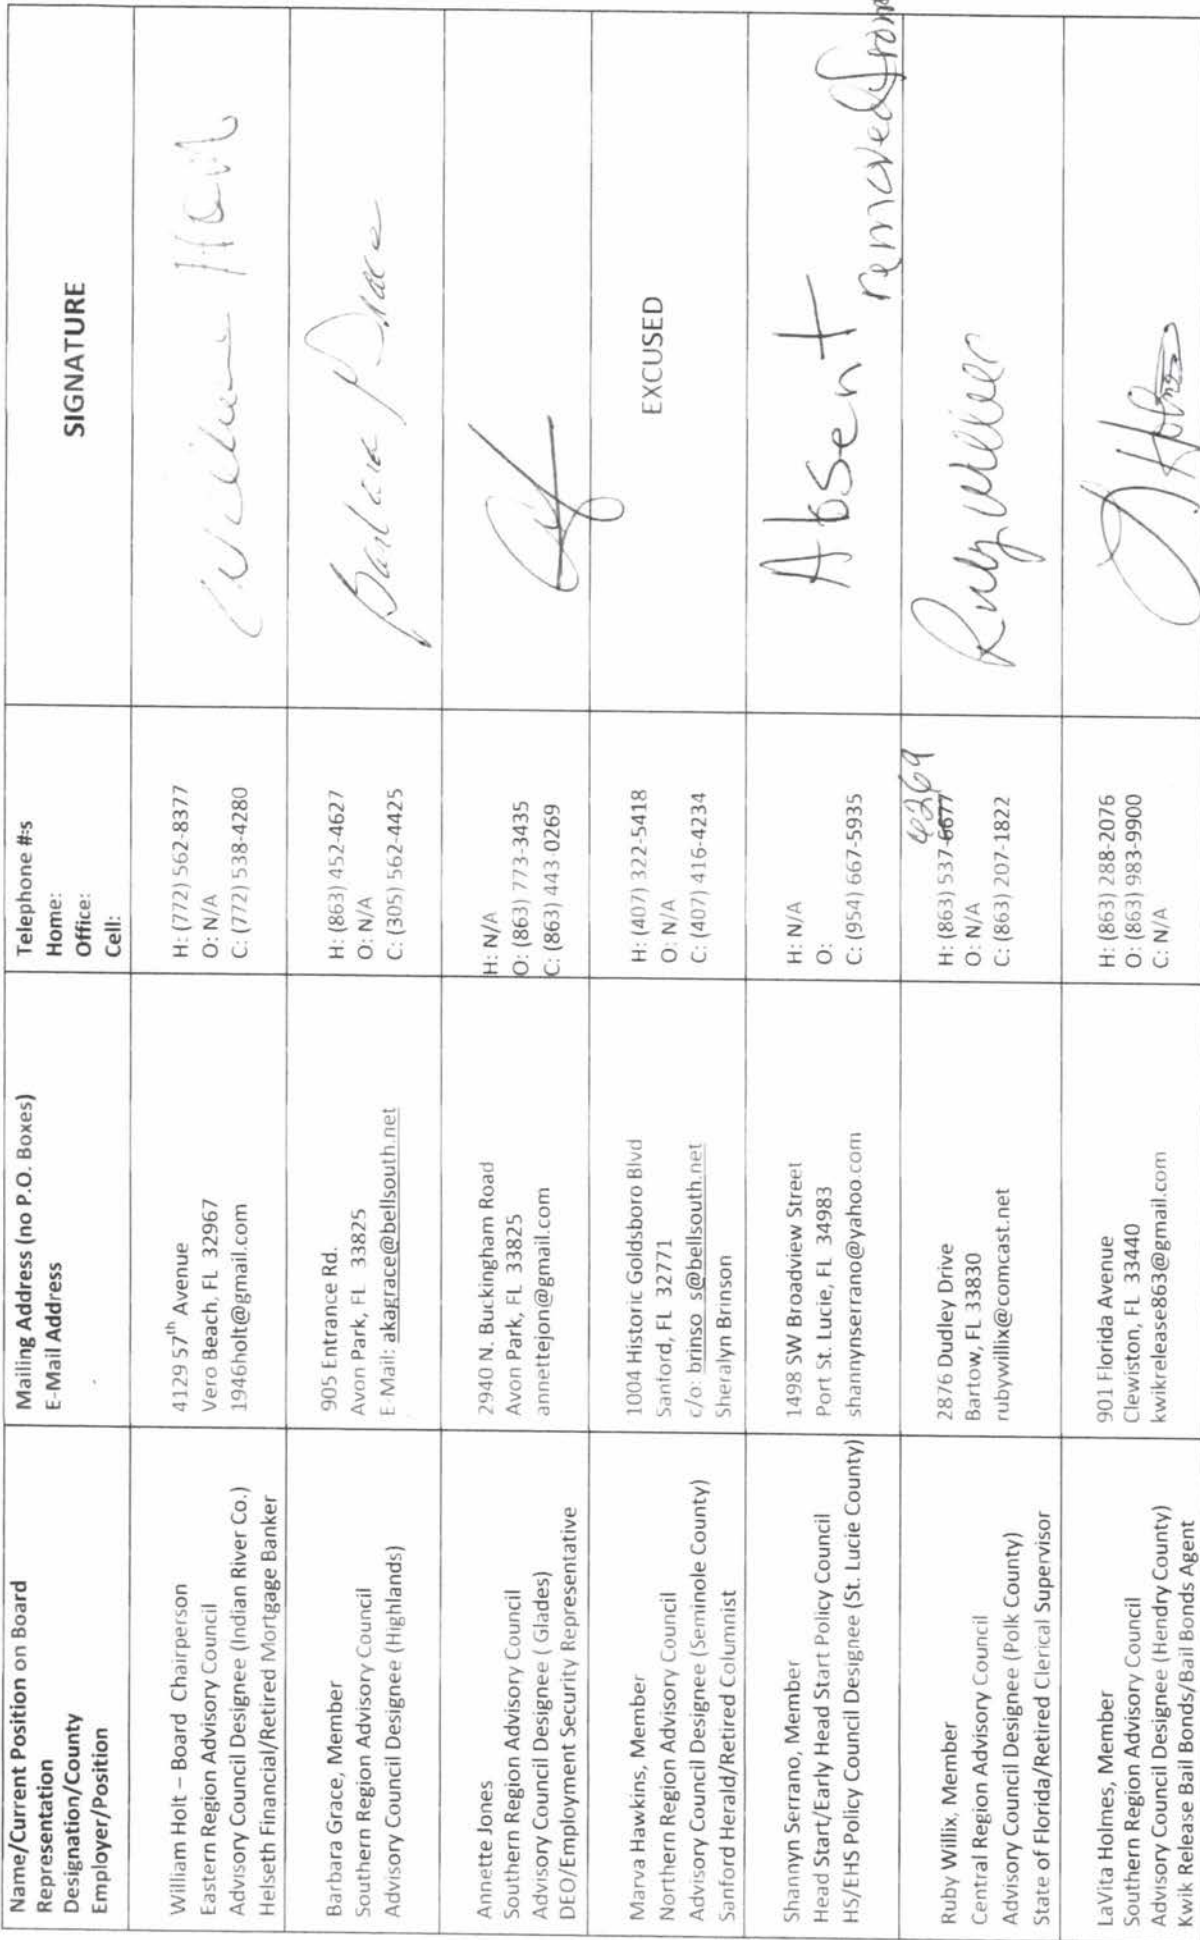 Name/Current Position on Board
Representation
Designation/County
Employer/Position
Mailing Address (no P.O. Boxes)
E-Mail Address
Telephone #:s
Home:
Office:
Cell:
SIGNATURE
William Holt – Board Chairperson
Eastern Region Advisory Council
Advisory Council Designee (Indian River Co.)
Helseth Financial/Retired Mortgage Banker
4129 57th Avenue
Vero Beach, FL 32967
1946holt@gmail.com
H: (772) 562-8377
O: N/A
C: (772) 538-4280
William Holt
Barbara Grace, Member
Southern Region Advisory Council
Advisory Council Designee (Highlands)
905 Entrance Rd.
Avon Park, FL 33825
E-Mail: akagrace@bellsouth.net
H: (863) 452-4627
O: N/A
C: (305) 562-4425
Barbara Grace
Annette Jones
Southern Region Advisory Council
Advisory Council Designee ( Glades)
DEO/Employment Security Representative
2940 N. Buckingham Road
Avon Park, FL 33825
annettejon@gmail.com
H: N/A
O: (863) 773-3435
C: (863) 443-0269
Marva Hawkins, Member
Northern Region Advisory Council
Advisory Council Designee (Seminole County)
Sanford Herald/Retired Columnist
1004 Historic Goldsboro Blvd
Sanford, FL 32771
c/o: brinso s@bellsouth.net
Sheralyn Brinson
H: (407) 322-5418
O: N/A
C: (407) 416-4234
EXCUSED
Shannyn Serrano, Member
Head Start/Early Head Start Policy Council
HS/EHS Policy Council Designee (St. Lucie County)
1498 SW Broadview Street
Port St. Lucie, FL 34983
shannynserrano@yahoo.com
H: N/A
O:
C: (954) 667-5935
Absent
removed from
Ruby Willix, Member
Central Region Advisory Council
Advisory Council Designee (Polk County)
State of Florida/Retired Clerical Supervisor
2876 Dudley Drive
Bartow, FL 33830
rubywillix@comcast.net
H: (863) 537-6677
O: N/A
C: (863) 207-1822
Ruby Willix
LaVita Holmes, Member
Southern Region Advisory Council
Advisory Council Designee (Hendry County)
Kwik Release Bail Bonds/Bail Bonds Agent
901 Florida Avenue
Clewiston, FL 33440
kwikrelease863@gmail.com
H: (863) 288-2076
O: (863) 983-9900
C: N/A